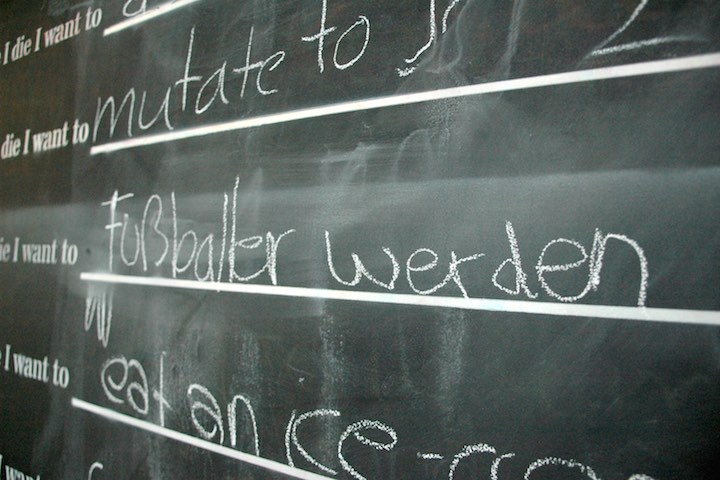 I die I want to
die I want to mutate to
die I want to Fußballer werden
I want to eat an ice-
I want